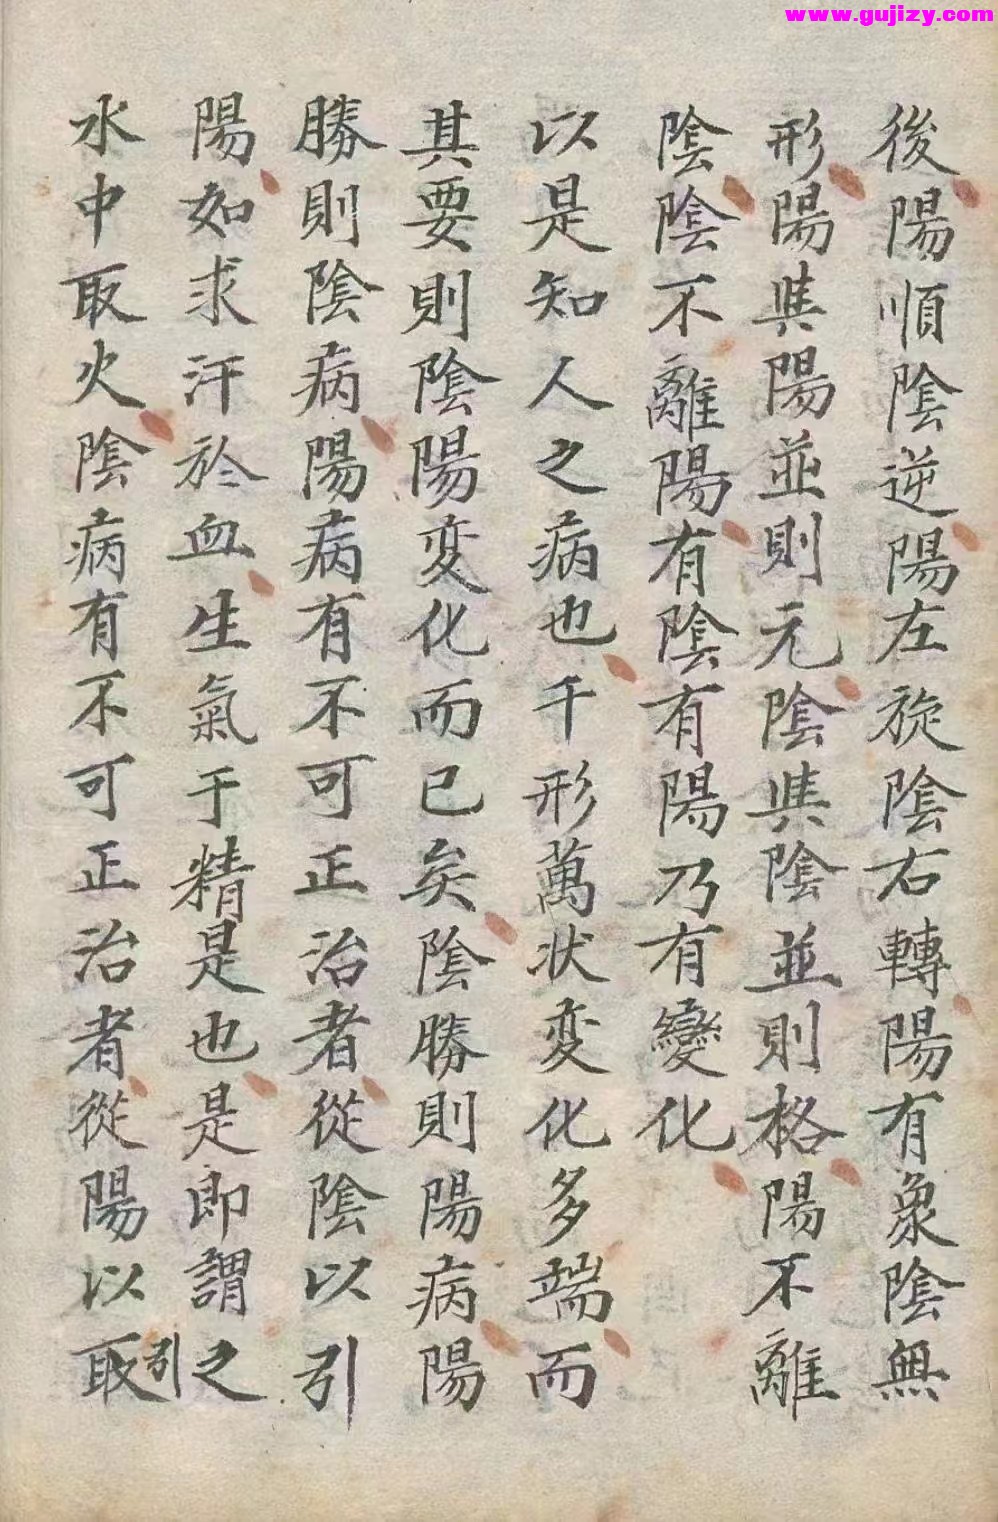 www.gujizy.com
後陽順陰逆陽左旋陰右轉陽有象陰無
形陽與陽並則元陰與陰並則格陽不離
陰陰不離陽有陰有陽乃有變化
以是知人之病也千形萬状変化多端而
其要則陰陽変化而已矣陰勝則陽病陽
勝則陰病陽病有不可正治者從陰以引
陽如求汗於血生氣于精是也是即謂之引
水中取火陰病有不可正治者從陽以取